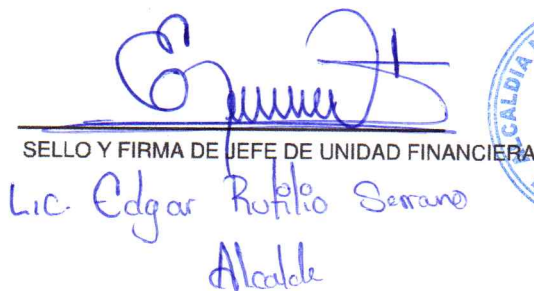 SELLO Y FIRMA DE JEFE DE UNIDAD FINANCIERA
Lic. Edgar Rutilio Serrano
Alcalde
ALCALDIA